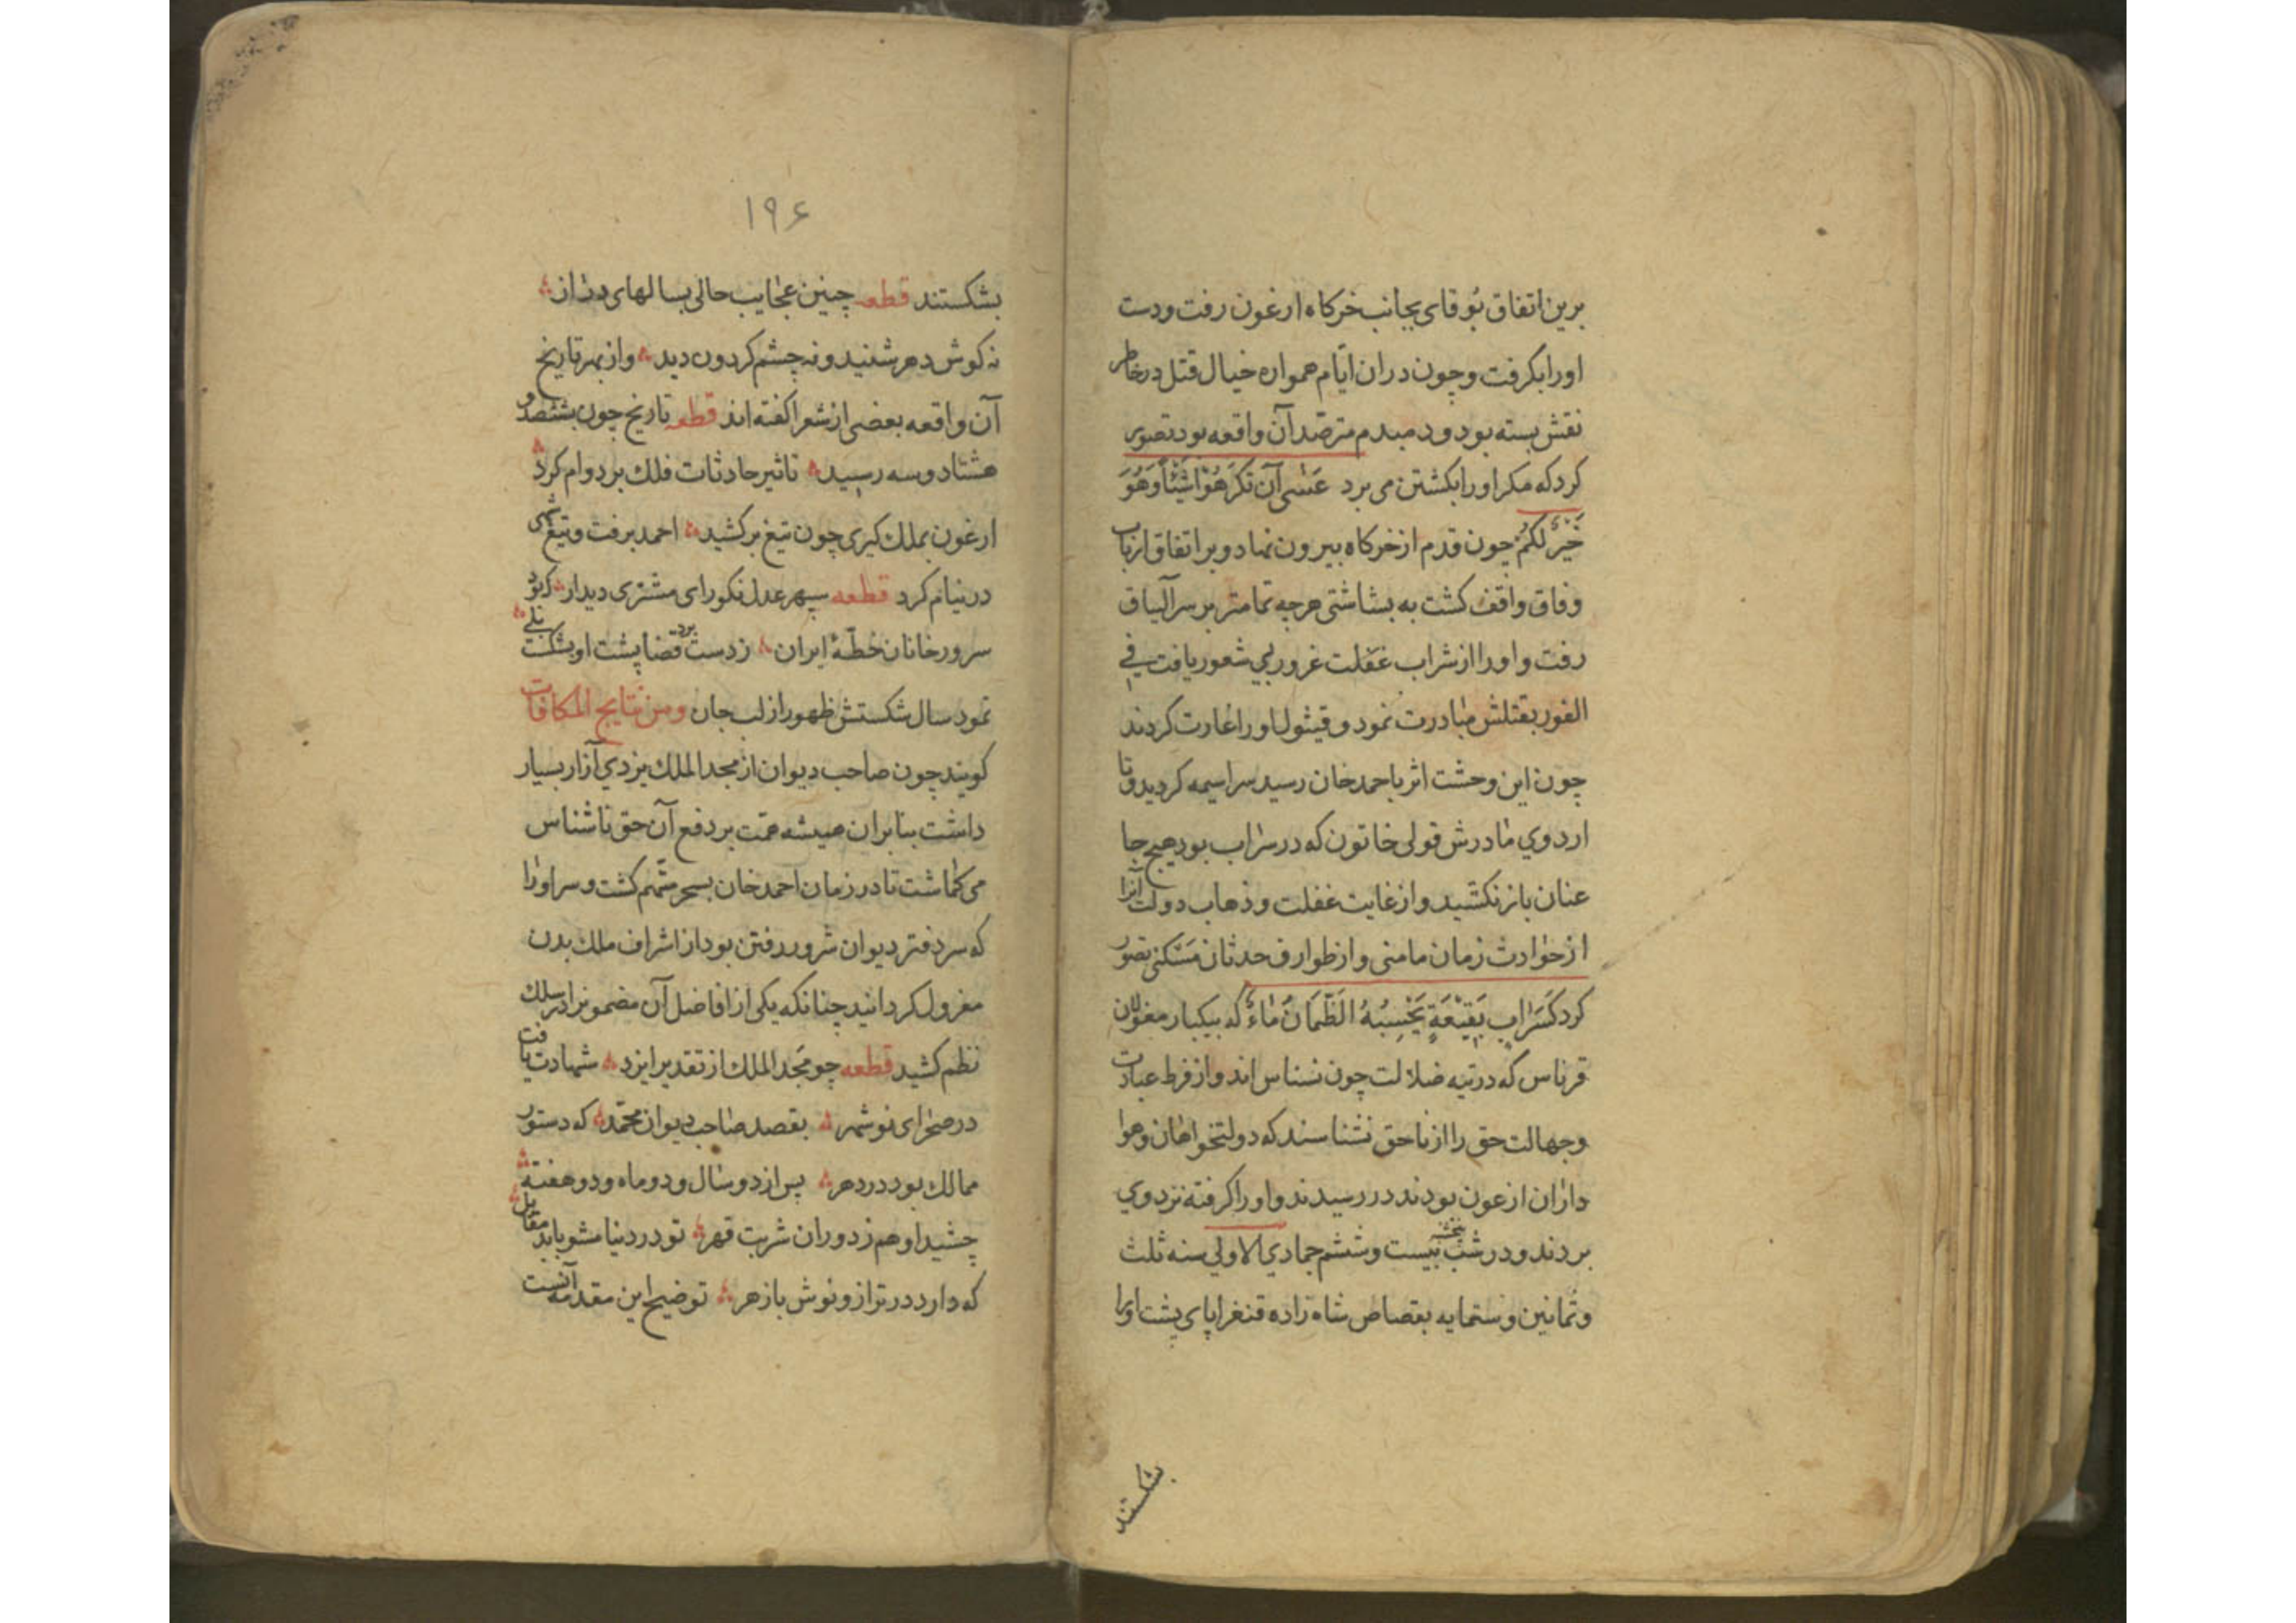 برین اتفاق بُوقای بجانب خرکاه ارغون رفت ودست
اورا بکرفت وچون دران ایّام همواره خیال قتل درخاطر
نقش بسته بود ودمبدم مترصّد آن واقعه بود تصوّر
کرد که مکر اورا بکشتن می برد عَسٰی آن تَکرَهُوْا شَیْئًا وَهُوَ
خَیْرٌ لَکُمْ چون قدم از خرکاه بیرون نهاد وبر اتفاق ارباب
وفاق واقف کشت به بشاشتی هرچه تمامتر بر سر آلیناق
رفت واورا از شراب غفلت غرور بی شعور یافت فی
الفور بقتلش مبادرت نمود وقیتول اورا غارت کردند
چون این وحشت اثر باحمد خان رسید سراسیمه کردید وتا
اردوی مادرش قولی خاتون که در سراب بود هیچ جا
عنان باز نکشید واز غایت غفلت وذهاب دولت آنرا
از حوادث زمان مامنی واز طوارف حدثان مَسْکنی تصوّر
کرد کَسَرَابٍ بِقِیْعَةٍ یَحْسِبُهُ الظَّمْاٰنُ مَاءً که بیکبار مغولان
قرناس که درتیه ضلالت چون نسناس اند واز فرط عبادت
وجهالت حق را از ناحق نشناسند که دولتخواهان وهوا
داران ارغون بودند در رسیدند واورا کرفته نزد وی
بردند ودر شب پنجشنبه بیست وششم جمادی الاولی سنه ثلث
وثمانین وستمایه بقصاص شاه زاده قنغرابای پشت اورا
بشکستند
۱۹۶
بشکستند قطعه چنین عجایب حالی بسالهای دراز
نه کوش دهر شنید ونه چشم کردون دید واز بهر تاریخ
آن واقعه بعضی از شعرا کفته اند قطعه تاریخ چون بششصد و
هشتاد وسه رسید تاثیر حادثات فلک بر دوام کرد
ارغون بملک کیری چون تیغ برکشید احمد برفت وتیغ شهی
در نیام کرد قطعه سپهر عدل نکورای مشتری دیدار که بود
سرور خانان خطّهٔ ایران ز دست برد قضا پشت او شکست بلی
نمود سال شکستش ظهور از لب جان ومن نتایج المکافات
کویند چون صاحب دیوان از مجد الملک یزدی آزار بسیار
داشت بنابران همیشه همّت بر دفع آن حق ناشناس
می کماشت تا در زمان احمد خان بسحر متّهم کشت وسر اورا
که سر دفتر دیوان شرور وفتن بود از اشراف ملک بدن
معزول کردانید چنانکه یکی از افاضل آن مضمونرا در سلک
نظم کشید قطعه چو مجد الملک از تقدیر ایزد شهادت یافت
در صحرای نوشهر بقصد صاحب دیوان محمّد که دستور
ممالک بود در دهر پس از دو سال ودو ماه ودو هفته
چشید او هم ز دوران شربت قهر تو در دنیا مشو باید مقابل
که دارد در ترازو نوش با زهر توضیح این مقدمه آنست